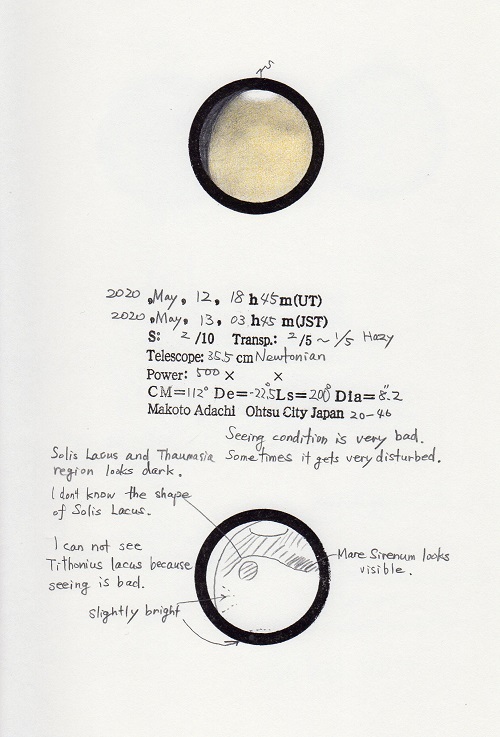 2020, May, 12, 18 h 45 m (UT)
2020, May, 13, 03 h 45 m (JST)
S: 2 /10 Transp.: 2/5 ~ 1/5 Hazy
Telescope: 35.5 cm Newtonian
Power: 500 × ×
CM=112° De=-22.5° Ls=200° Dia=8".2
Makoto Adachi Ohtsu City Japan 20-46
Seeing condition is very bad.
Sometimes it gets very disturbed.
Solis Lacus and Thaumasia
region looks dark.
I don't know the shape
of Solis Lacus.
I can not see
Tithonius lacus because
seeing is bad.
Mare Sirenum looks
visible.
slightly bright